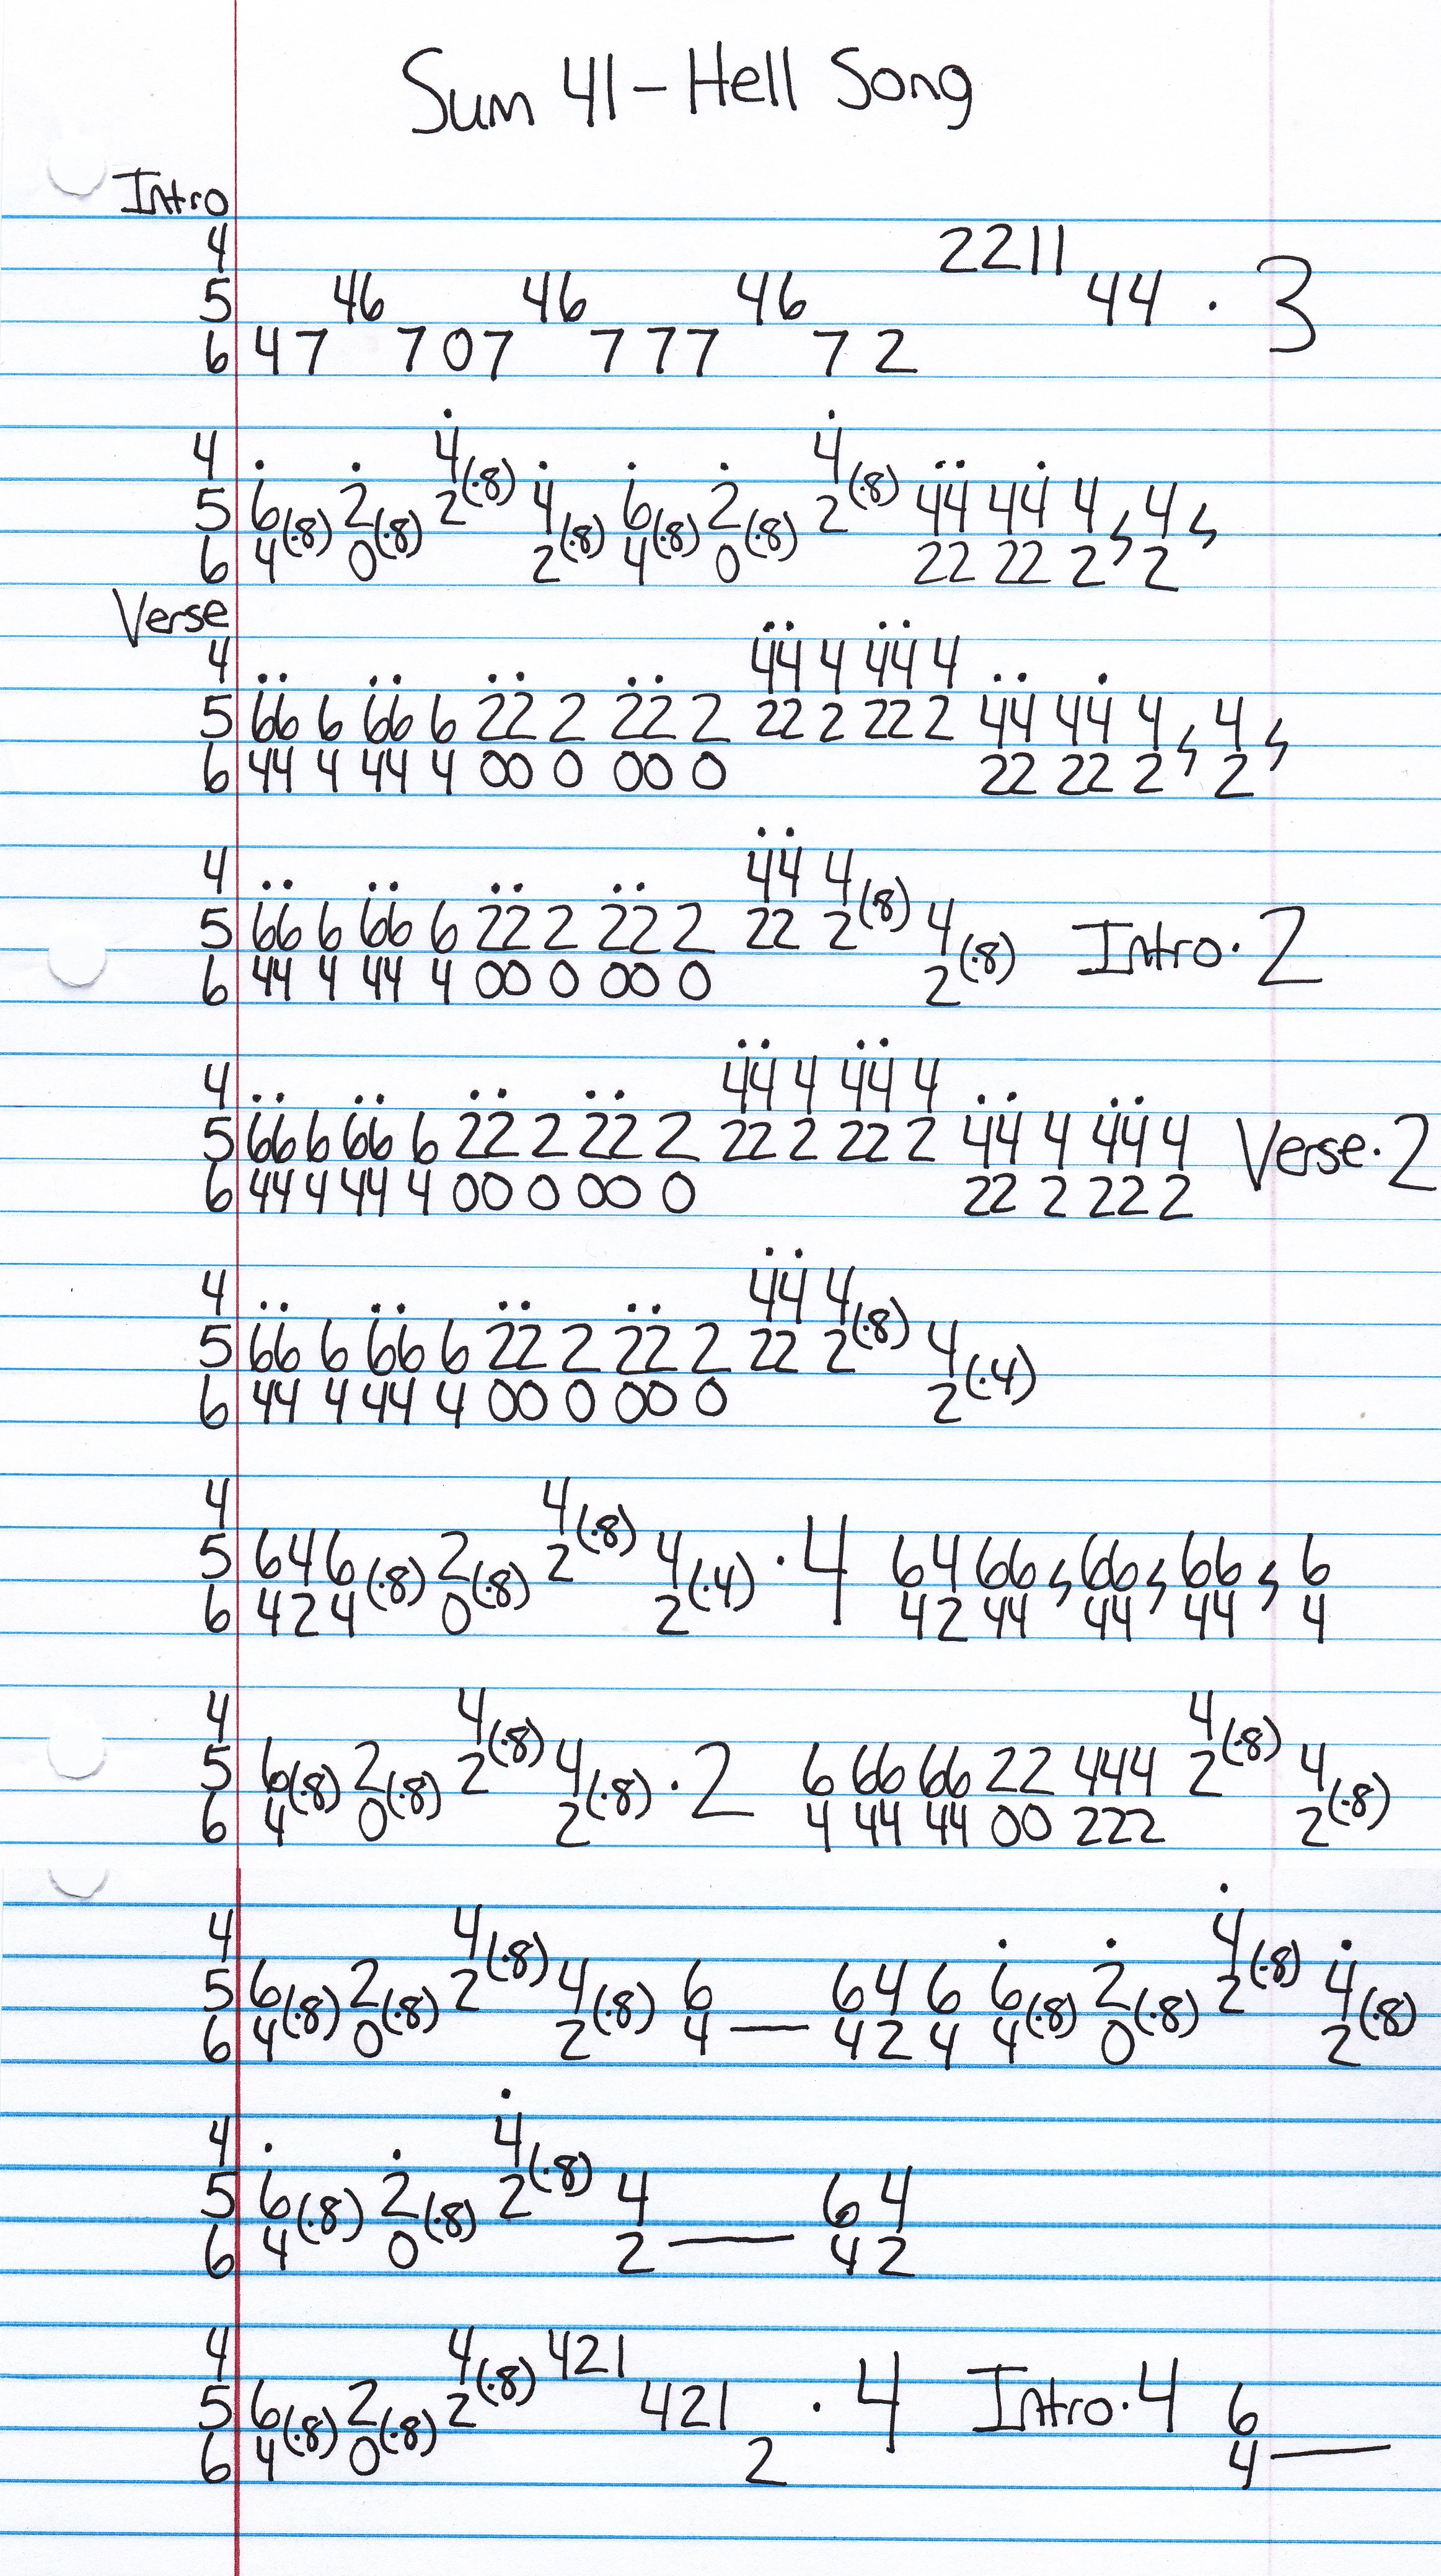 Sum 41 - Hell Song
Intro
4 2211
5 46 46 46 44 · 3
6 47 707 777 72
4 4(·8) 4(·8)
5 6(·8) 2(·8) 2 4(·8) 6(·8) 2(·8) 2 44 44 4, 4,
6 4 0 2 4 0 22 22 2 2
Verse
4 44 4 44 4
5 66 6 66 6 22 2 22 2 22 2 22 2 44 44 4, 4,
6 44 4 44 4 00 0 00 0 22 22 2 2
4 44 4(·8)
5 66 6 66 6 22 2 22 2 22 2 4(·8) Intro · 2
6 44 4 44 4 00 0 00 0 2
4 44 4 44 4
5 66 6 66 6 22 2 22 2 22 2 22 2 44 4 44 4 Verse · 2
6 44 4 44 4 00 0 00 0 22 2 22 2
4 44 4(·8)
5 66 6 66 6 22 2 22 2 22 2 4(·4)
6 44 4 44 4 00 0 00 0 2
4 4(·8)
5 646(·8) 2(·8) 2 4(·4) · 4 6466, 66, 66, 6
6 424 0 2 4244 44 44 4
4 4(·8) 4(·8)
5 6(·8) 2(·8) 2 4(·8) · 2 6 66 66 22 444 2 4(·8)
6 4 0 2 4 44 44 00 222 2
4 4(·8) 4(·8)
5 6(·8) 2(·8) 2 4(·8) 6 646 6(·8) 2(·8) 2 4(·8)
6 4 0 2 4 — 424 4 0 2
4 4(·8)
5 6(·8) 2(·8) 2 4 64
6 4 0 2 — 42
4 4(·8) 421
5 6(·8) 2(·8) 2 421 · 4 Intro · 4 6
6 4 0 2 4 —